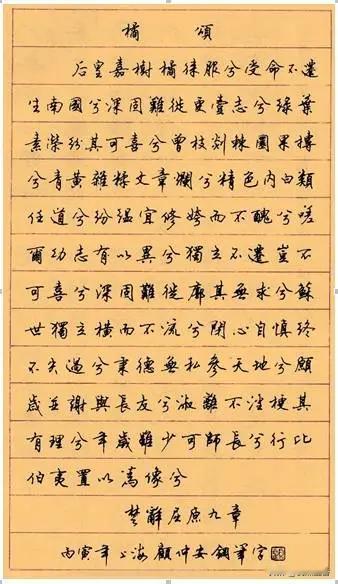 橘頌
后皇嘉樹橘徠服兮受命不遷
生南國兮深固難徙更壹志兮綠葉
素榮紛其可喜兮曾枝剡棘圓果摶
兮青黃雜糅文章爛兮精色內白類
任道兮紛緼宜修姱而不醜兮嗟
爾幼志有以異兮獨立不遷豈不
可喜兮深固難徙廓其無求兮蘇
世獨立橫而不流兮閉心自慎終
不失過兮秉德無私參天地兮願
歲並謝與長友兮淑離不淫梗其
有理兮年歲雖少可師長兮行比
伯夷置以為像兮
楚辭屈原九章
丙寅年上海顧仲安鋼筆字